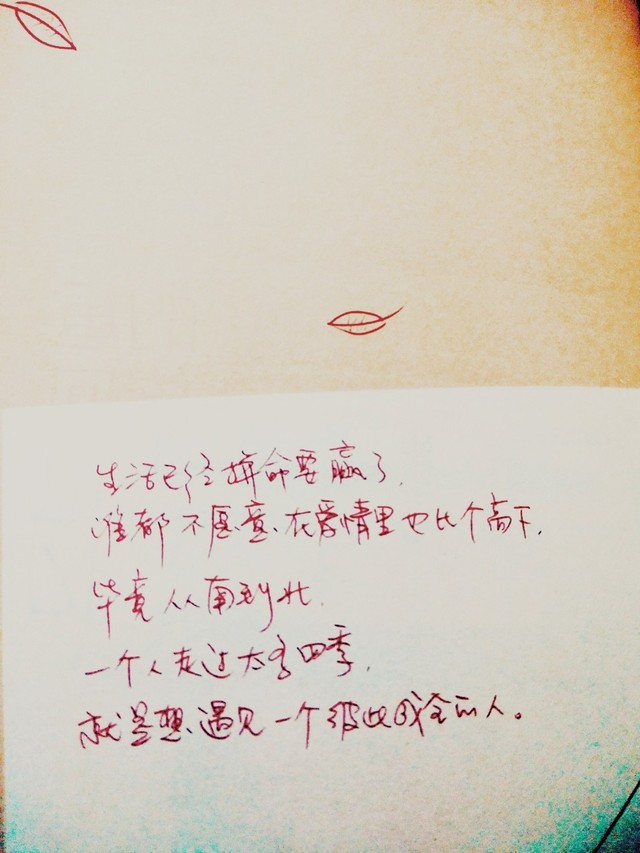 生活已经拼命要赢了,
谁都不愿意在爱情里也比个高下,
毕竟从南到北,
一个人走过太多四季,
就是想遇见一个彼此成全的人。